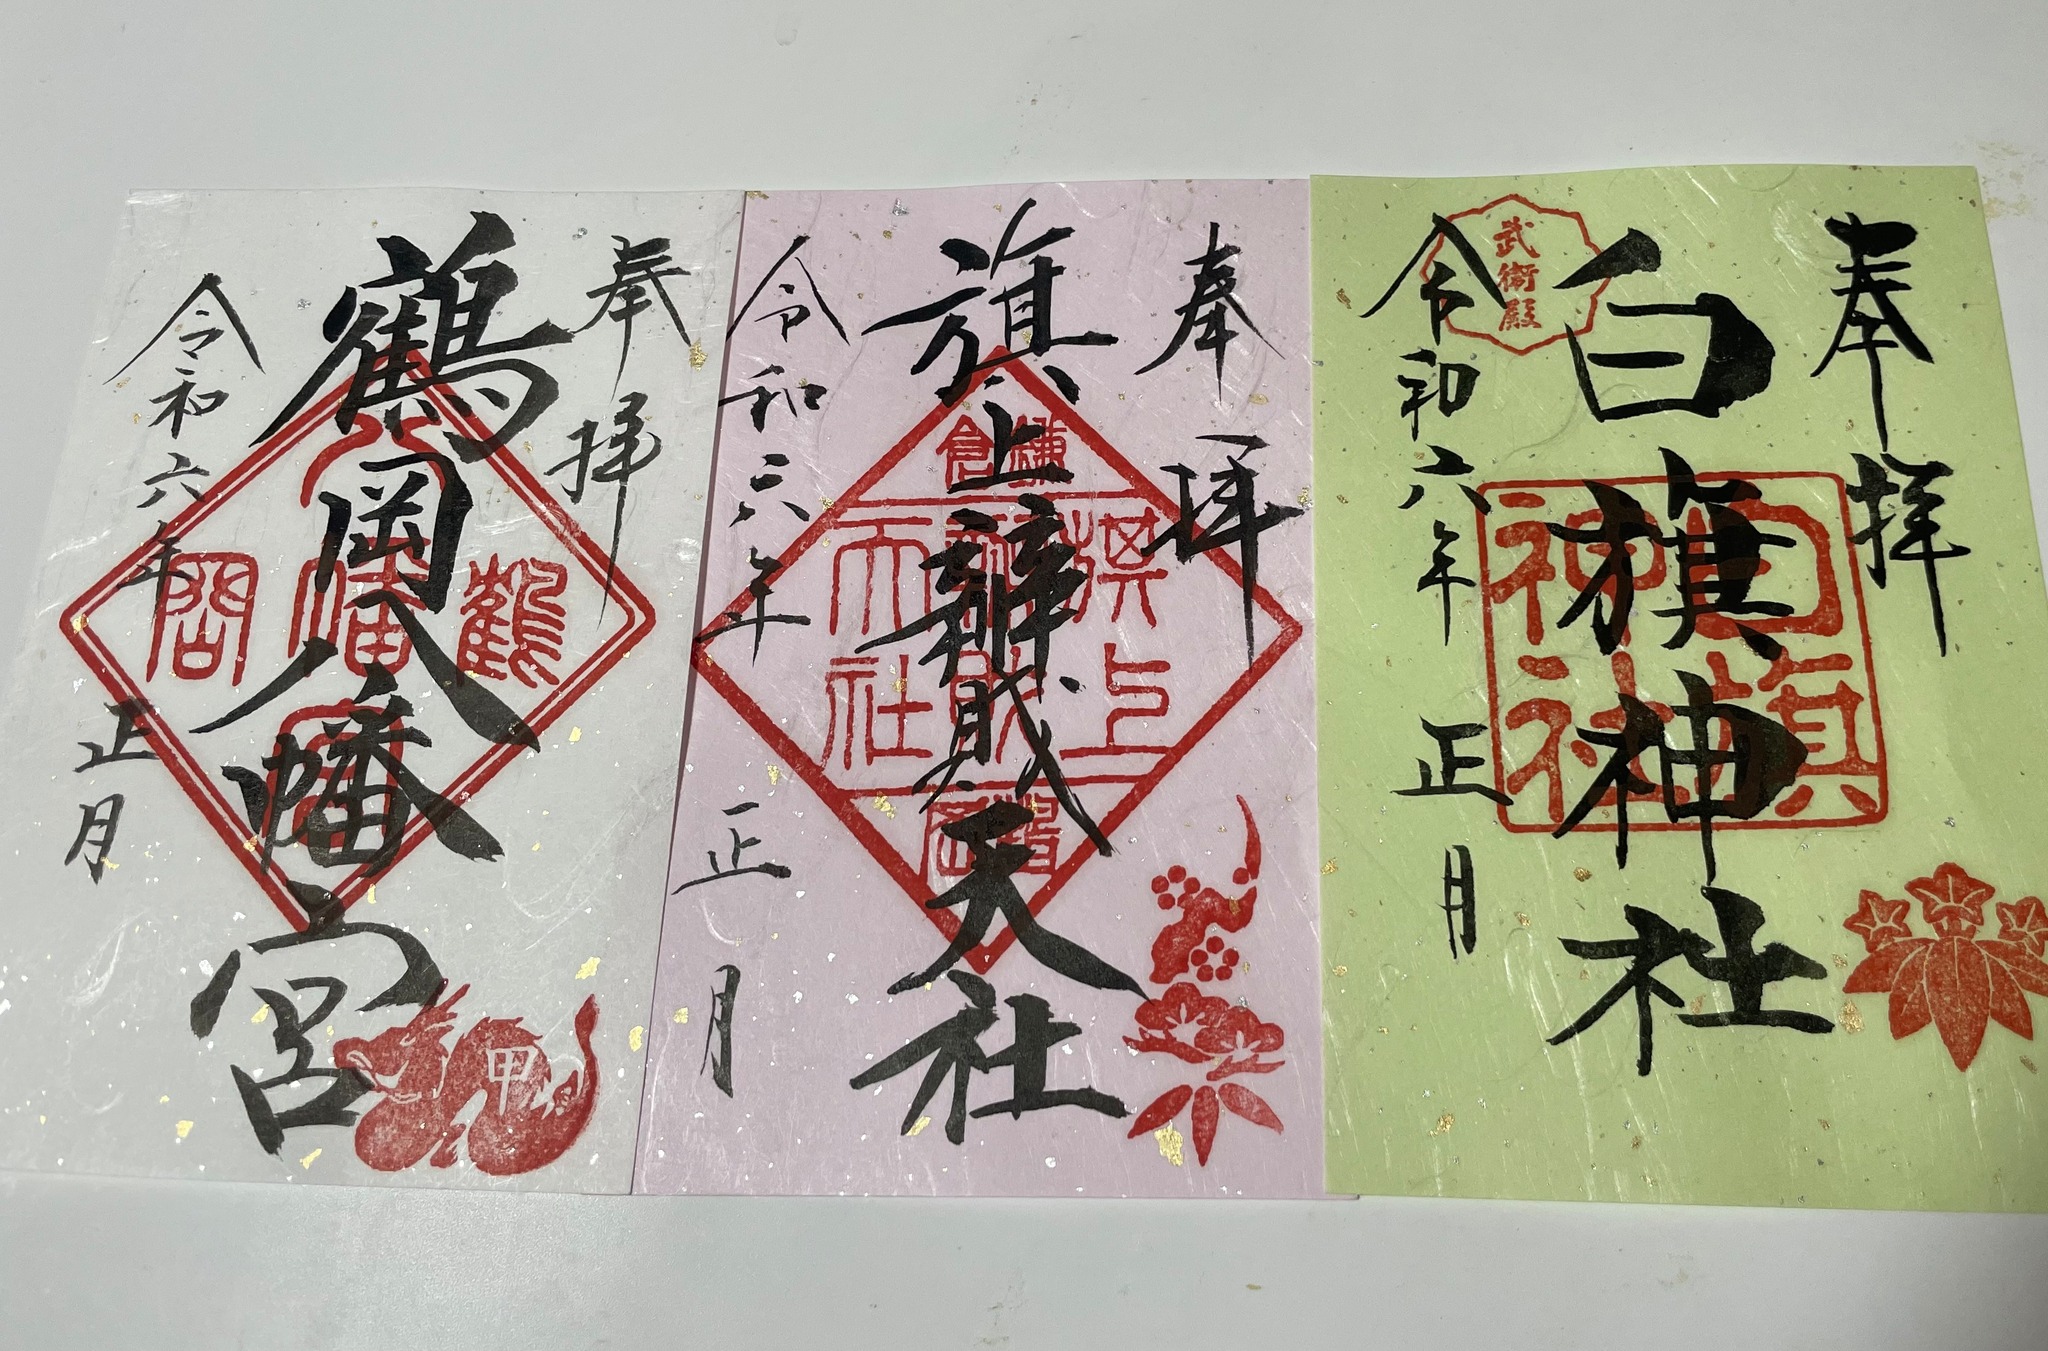 奉拝
鶴岡八幡宮
令和六年
正月
鶴岡八幡宮
甲
奉拝
旗上辨財天社
令和六年
正月
鎌倉
旗上
辨財
天社
奉拝
白旗神社
令和六年
正月
武衛殿
白旗
神社